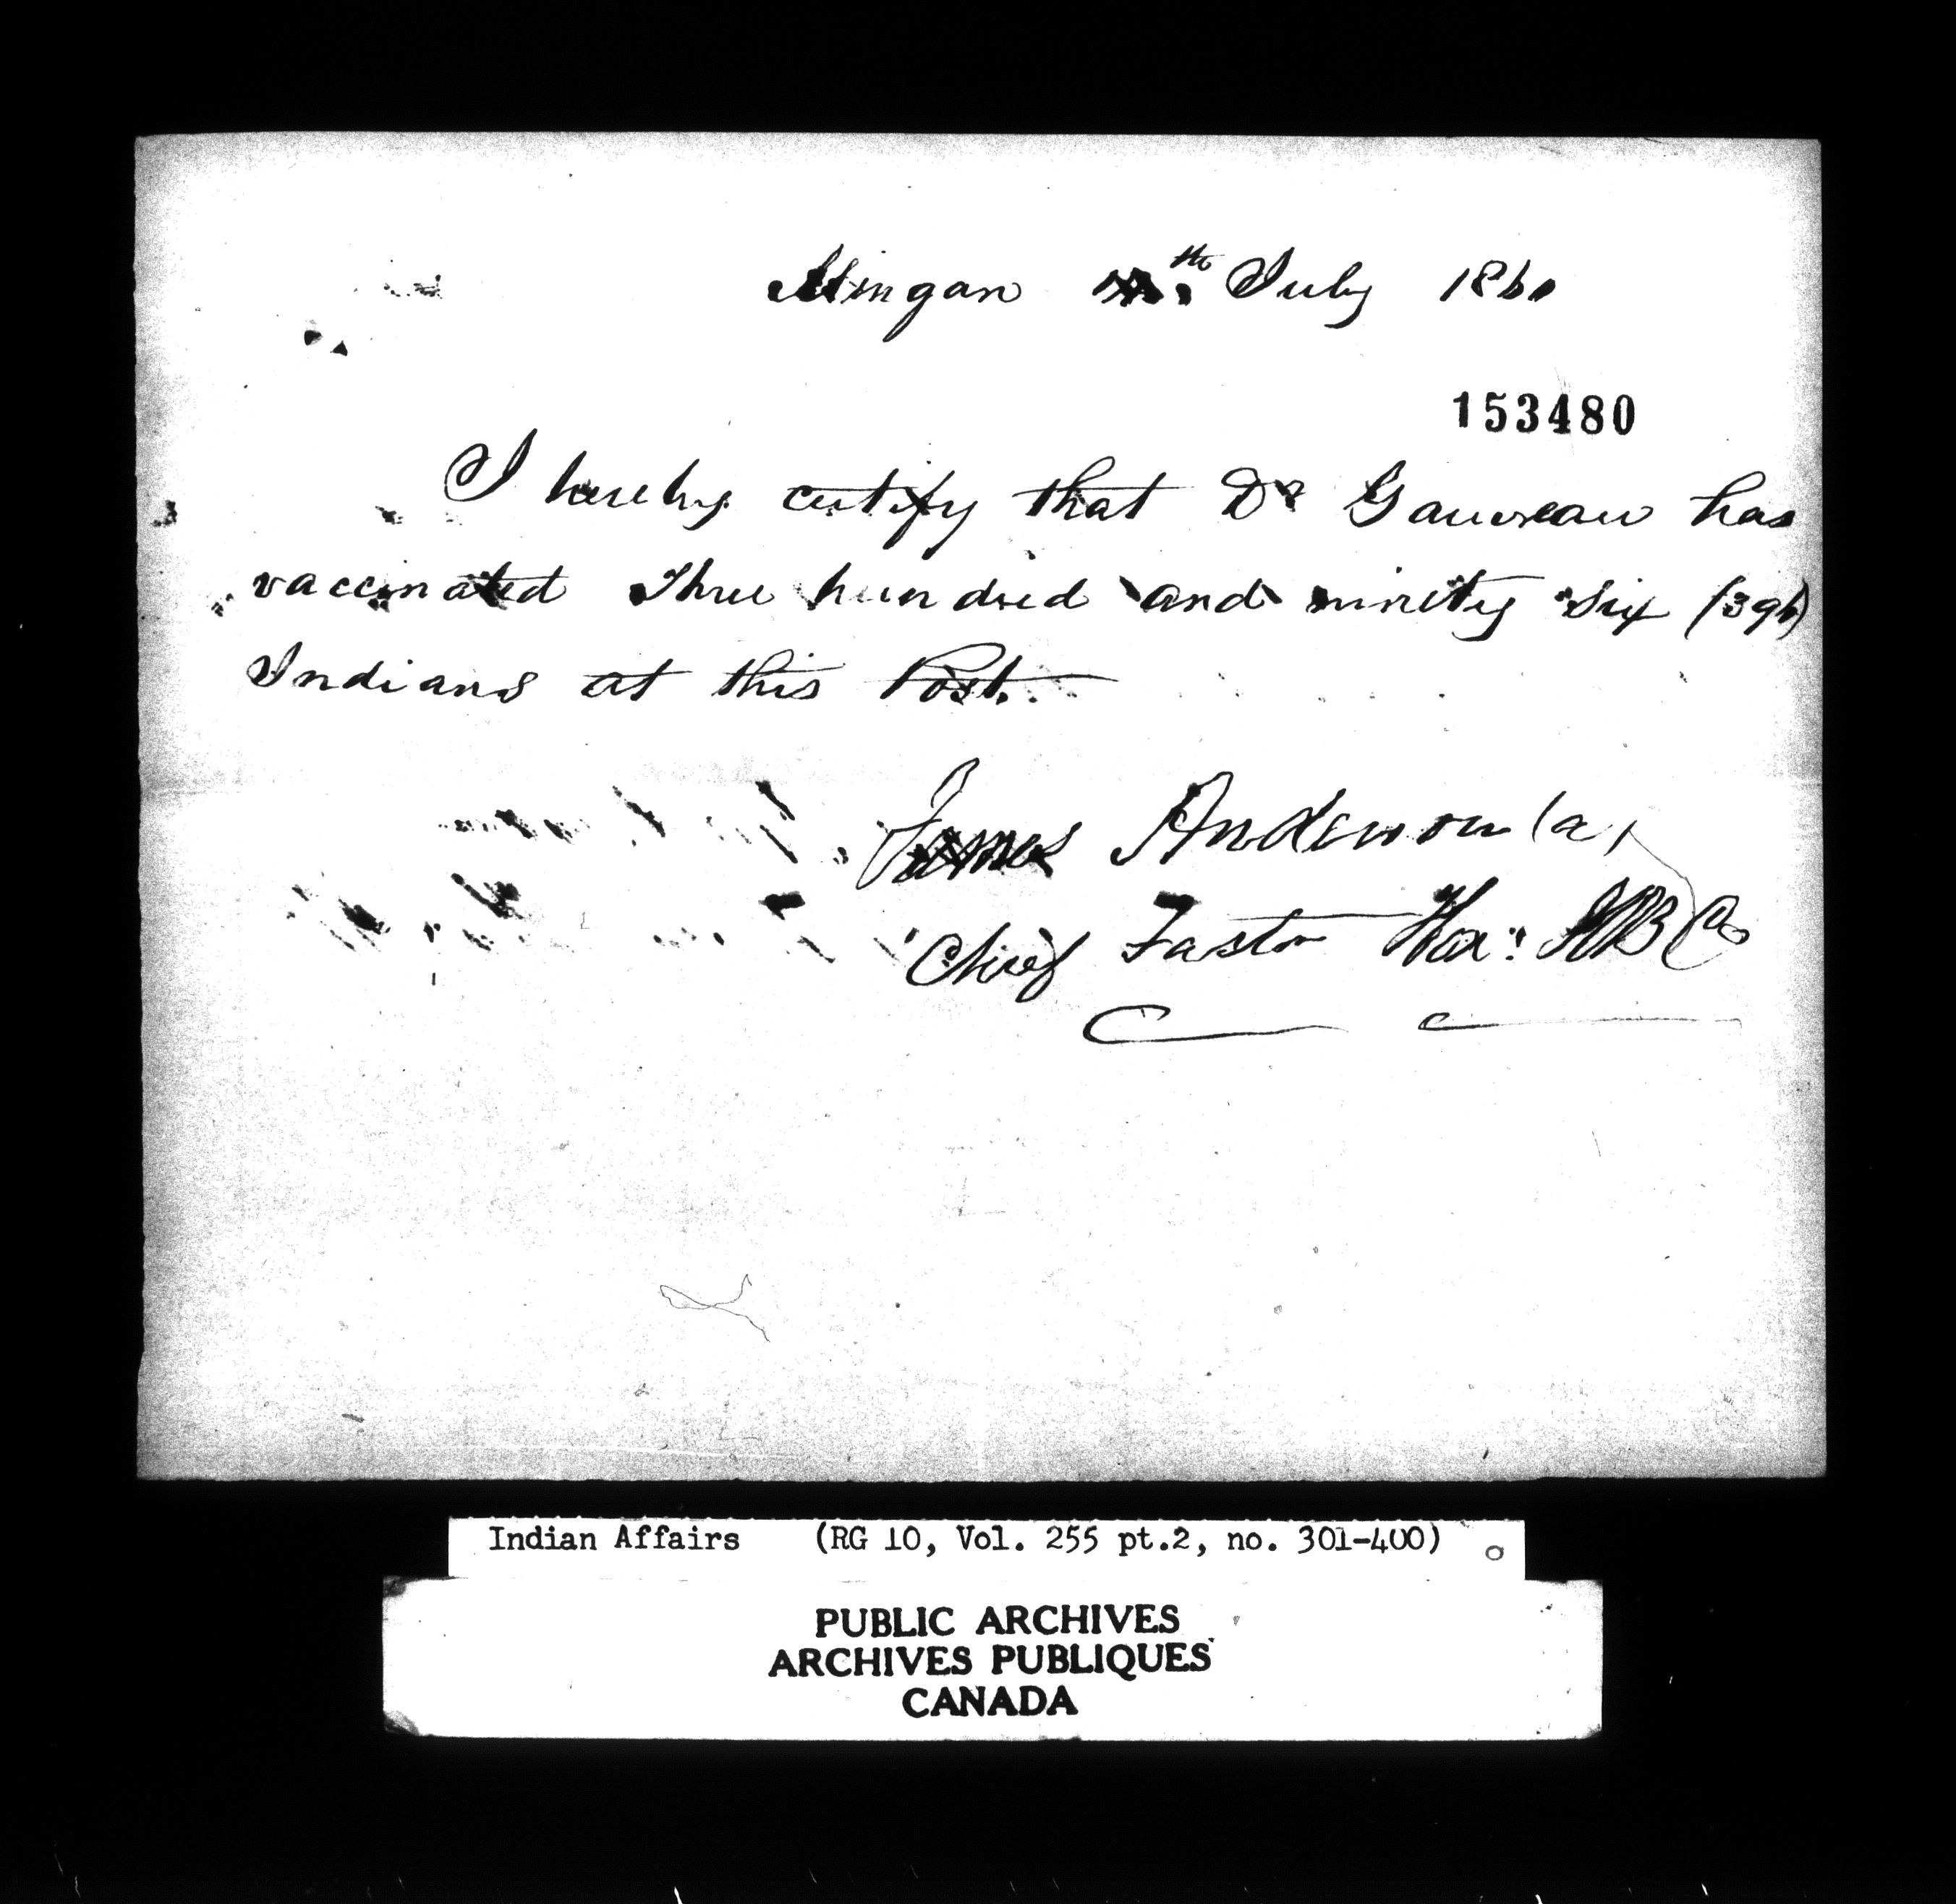 Mingan th July 1860
153480
I hereby certify that Dr Gauvreau has
vaccinated Three hundred and ninety six (396)
Indians at this Post.
James Anderson (a)
Chief Factor Hon: HB Co
Indian Affairs (RG 10, Vol. 255 pt.2, no. 301-400)
PUBLIC ARCHIVES
ARCHIVES PUBLIQUES
CANADA